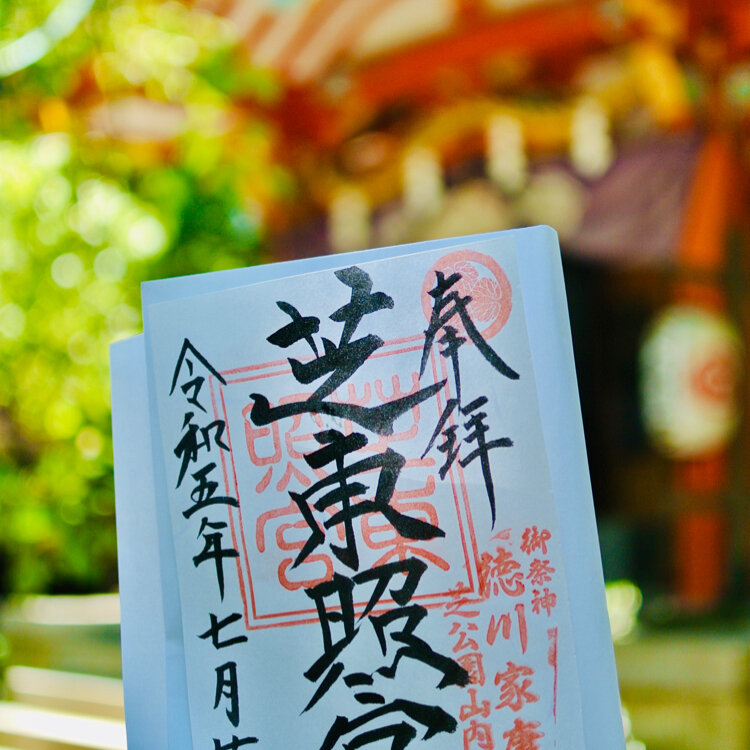 奉拝
御祭神
徳川家康
芝公園山内
芝東照宮
令和五年七月